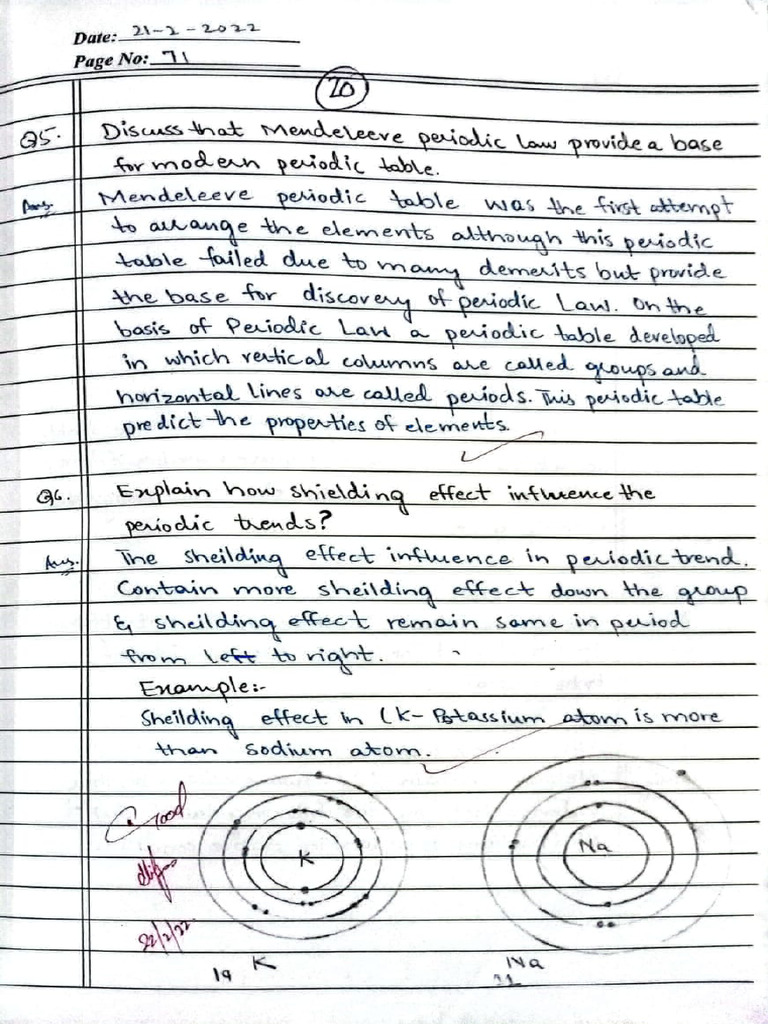 Date: 21-2-2022
Page No: 71
20
Q5. Discuss that Mendeleeve periodic law provide a base
for modern periodic table.
Ans. Mendeleeve periodic table was the first attempt
to arrange the elements although this periodic
table failed due to many demerits but provide
the base for discovery of periodic Law. On the
basis of Periodic Law a periodic table developed
in which vertical columns are called groups and
horizontal lines are called periods. This periodic table
predict the properties of elements.
Q6. Explain how shielding effect influence the
periodic trends?
Ans. The sheilding effect influence in periodic trend.
Contain more sheilding effect down the group
& sheilding effect remain same in period
from left to right.
Example:-
Sheilding effect in (K- Potassium atom is more
than sodium atom.
Good
K
Na
22/2/22
19 K
Na
11